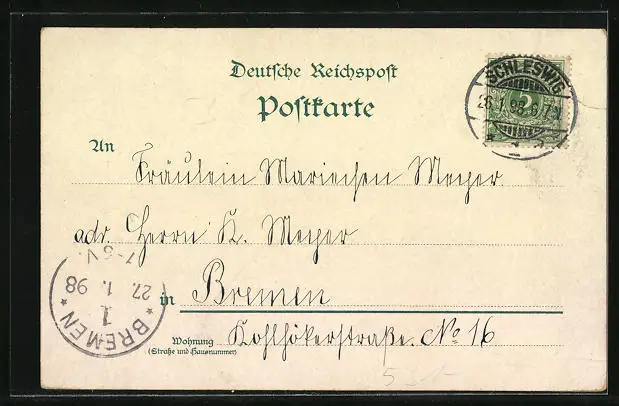 Deutsche Reichspost
Postkarte
SCHLESWIG
26.1.98. 6-7N
An Fräulein Mariechen Meyer
adr. Herrn K. Meyer
in Bremen
Wohnung Kohlhökerstraße. No 16
(Straße und Hausnummer)
BREMEN
1
27. 1. 98